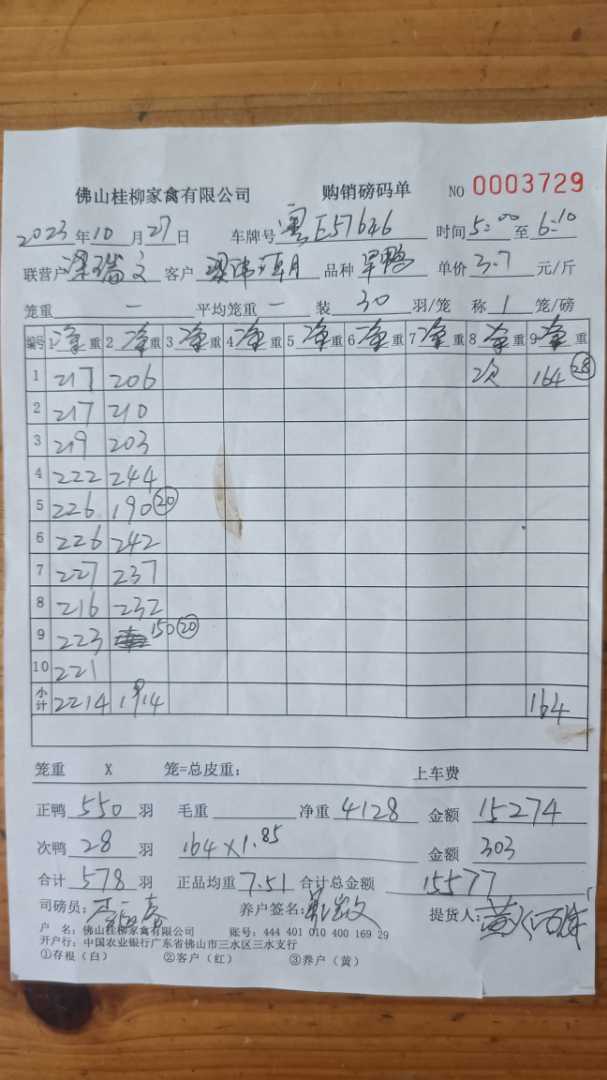 佛山桂柳家禽有限公司 购销磅码单 NO 0003729
2023年10月27日 车牌号 粤E57646 时间 5:00 至 6:10
联营户 梁瑞文 客户 品种 旱鸭 单价 3.7 元/斤
笼重 一 平均笼重 一 装 30 羽/笼 称 1 笼/磅
编号 1 净重 2 净重 3 净重 4 净重 5 净重 6 净重 7 净重 8 净重 9 净重
1 217 206 次 164 28
2 217 210
3 219 203
4 222 244
5 226 190 20
6 226 242
7 227 237
8 216 232
9 223 150 20
10 221
小计 2214 1914 164
笼重 X 笼=总皮重： 上车费
正鸭 550 羽 毛重 净重 4128 金额 15274
次鸭 28 羽 164×1.85 金额 303
合计 578 羽 正品均重 7.51 合计总金额 15577
司磅员： 养户签名： 提货人：
户 名：佛山桂柳家禽有限公司 账号：444 401 010 400 169 29
开户行：中国农业银行广东省佛山市三水区三水支行
①存根（白） ②客户（红） ③养户（黄）